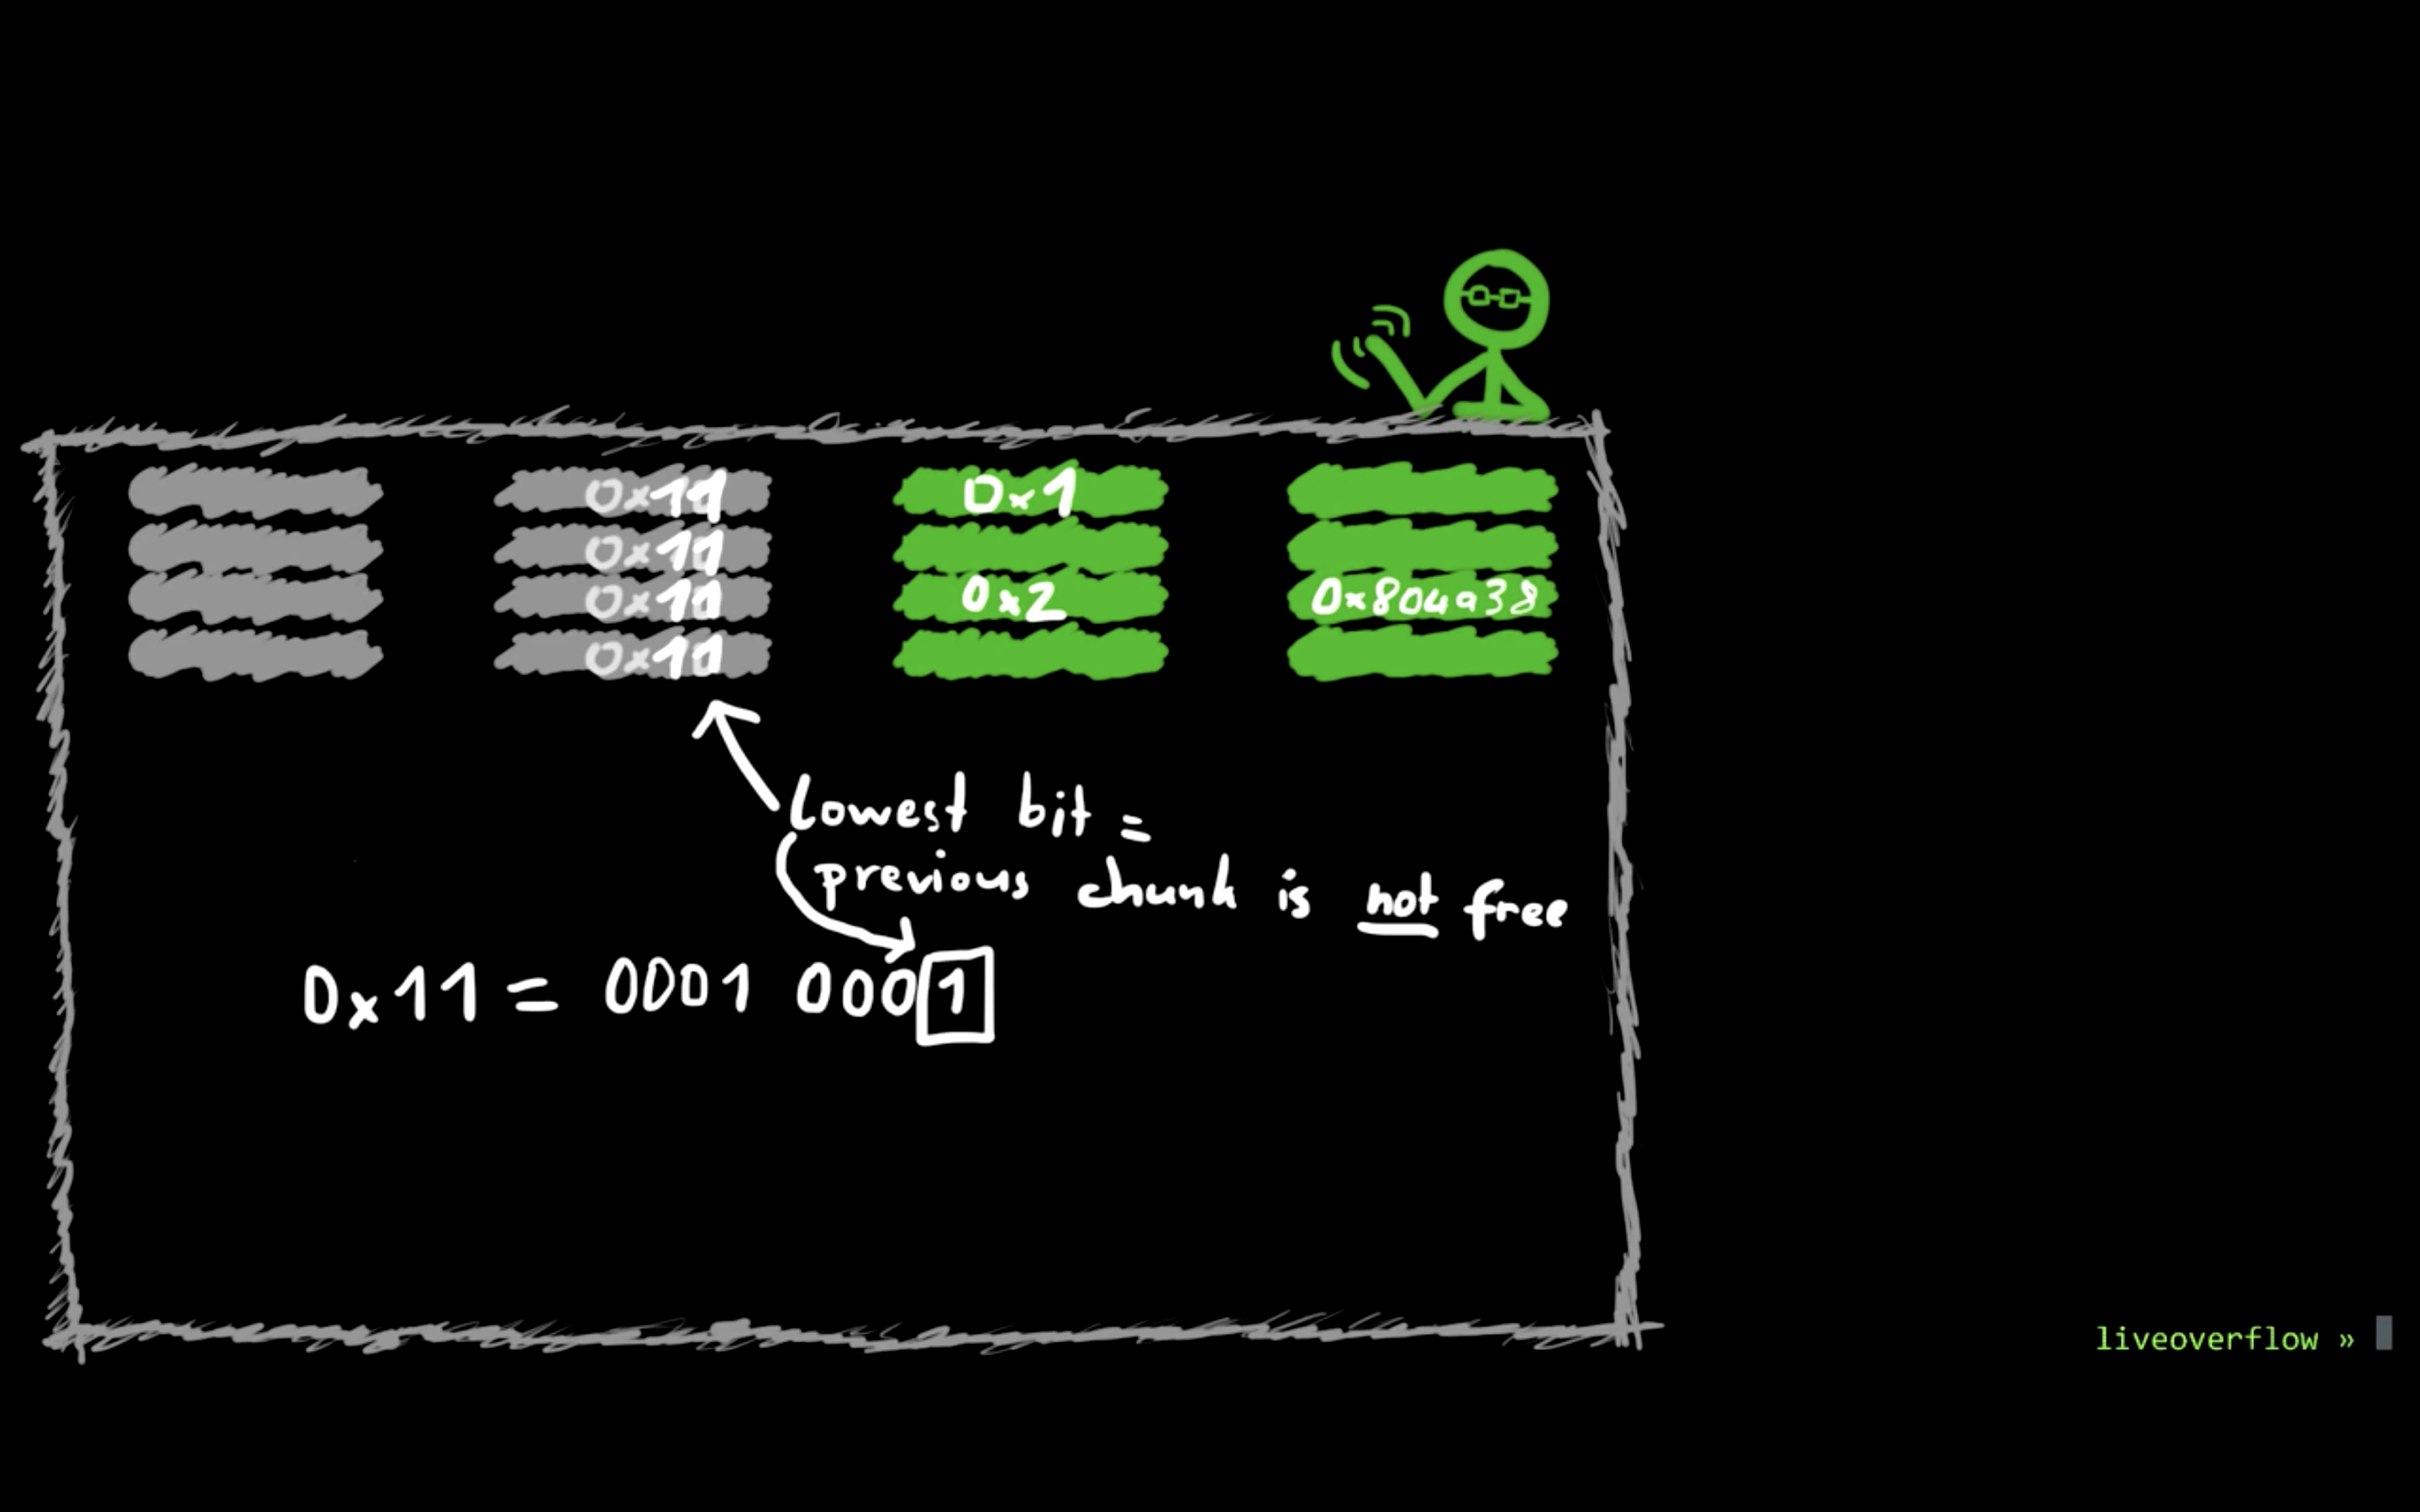 0x11 0x1
0x11
0x11 0x2 0x804a38
0x11
Lowest bit =
previous chunk is not free
0x11 = 0001 0001
liveoverflow »